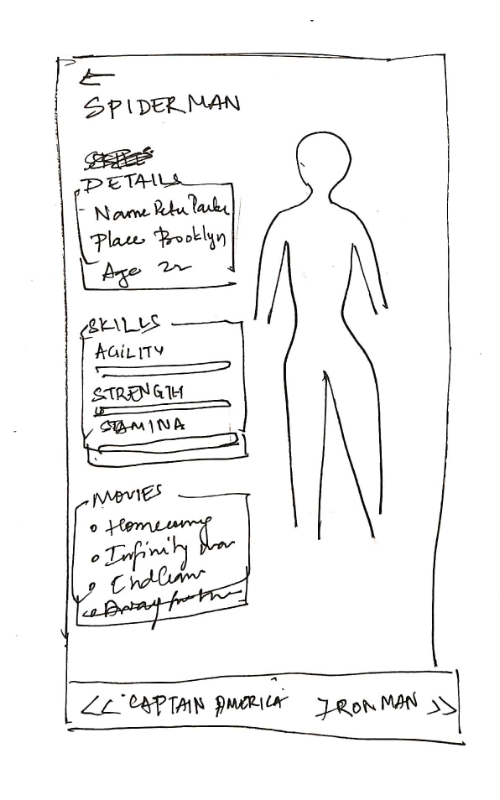 ←
SPIDERMAN
DETAILS
Name Peter Parker
Place Booklyn
Age 22
SKILLS
AGILITY
STRENGTH
STAMINA
MOVIES
• Homecoming
• Infinity war
• EndGame
<< CAPTAIN AMERICA IRONMAN >>